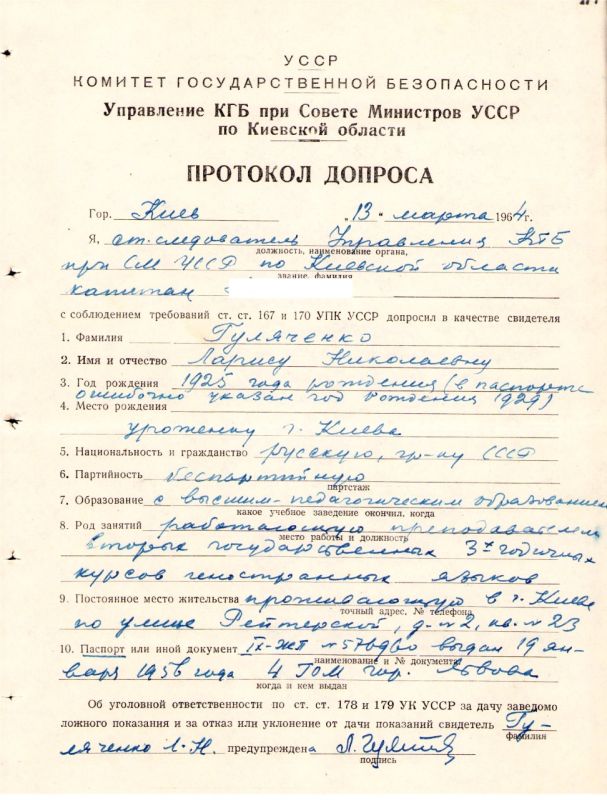 УССР
КОМИТЕТ ГОСУДАРСТВЕННОЙ БЕЗОПАСНОСТИ
Управление КГБ при Совете Министров УССР
по Киевской области
ПРОТОКОЛ ДОПРОСА
Гор. Киев „13" марта 1964 г.
Я, ст. следователь Управления КГБ
должность, наименование органа,
при СМ УССР по Киевской области
звание, фамилия
капитан
с соблюдением требований ст. ст. 167 и 170 УПК УССР допросил в качестве свидетеля
1. Фамилия Гуляченко
2. Имя и отчество Ларису Николаевну
3. Год рождения 1925 года рождения (в паспорте
ошибочно указан год рождения 1929)
4. Место рождения
уроженку г. Киева
5. Национальность и гражданство русскую, гр-ку СССР
6. Партийность беспартийную
партстаж
7. Образование с высшим педагогическим образованием
какое учебное заведение окончил, когда
8. Род занятий работающую преподавателем
место работы и должность
вторых государственных 3х годичных
курсов иностранных языков
9. Постоянное место жительства проживающую в г. Киеве
точный адрес, № телефона
по улице Рейтерской, д. №2, кв. №23
10. Паспорт или иной документ выдан 19 ян-
наименование и № документа
варя 1956 года 4 ГОМ гор. Львова
когда и кем выдан
Об уголовной ответственности по ст. ст. 178 и 179 УК УССР за дачу заведомо
ложного показания и за отказ или уклонение от дачи показаний свидетель Гу-
фамилия
ляченко Л. Н. предупреждена
подпись